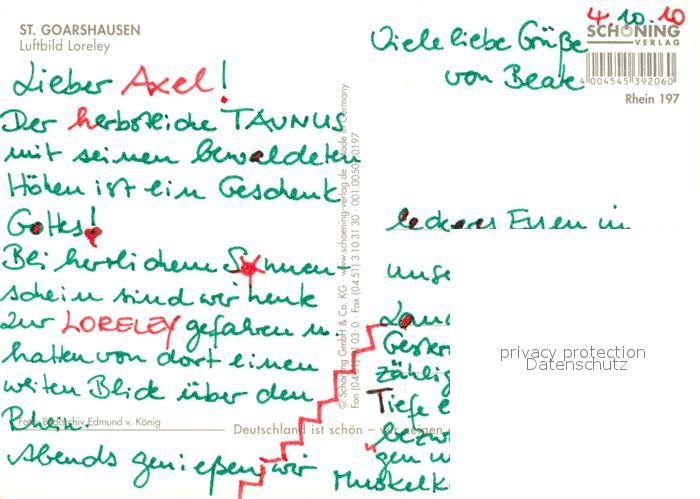 ST. GOARSHAUSEN
Luftbild Loreley
4.10.10
Viele liebe Grüße
von Beate
SCHÖNING
VERLAG
4 004545 392060
Rhein 197
Lieber Axel!
Der herbstliche TAUNUS
mit seinen bewaldeten
Höhen ist ein Geschenk
Gottes!
Bei herrlichem Sonnen-
schein sind wir heute
zur LORELEY gefahren u.
hatten von dort einen
weiten Blick über den
Rhein.
Abends genießen wir
leckeres Essen in
unse
Lan
Gester
zählig
Tiefe
bezw
gen u
Muskelk
© Schöning GmbH & Co. KG · www.schoening-verlag.de · Made in Germany
Foto: Bildarchiv Edmund v. König
Deutschland ist schön –
privacy protection
Datenschutz